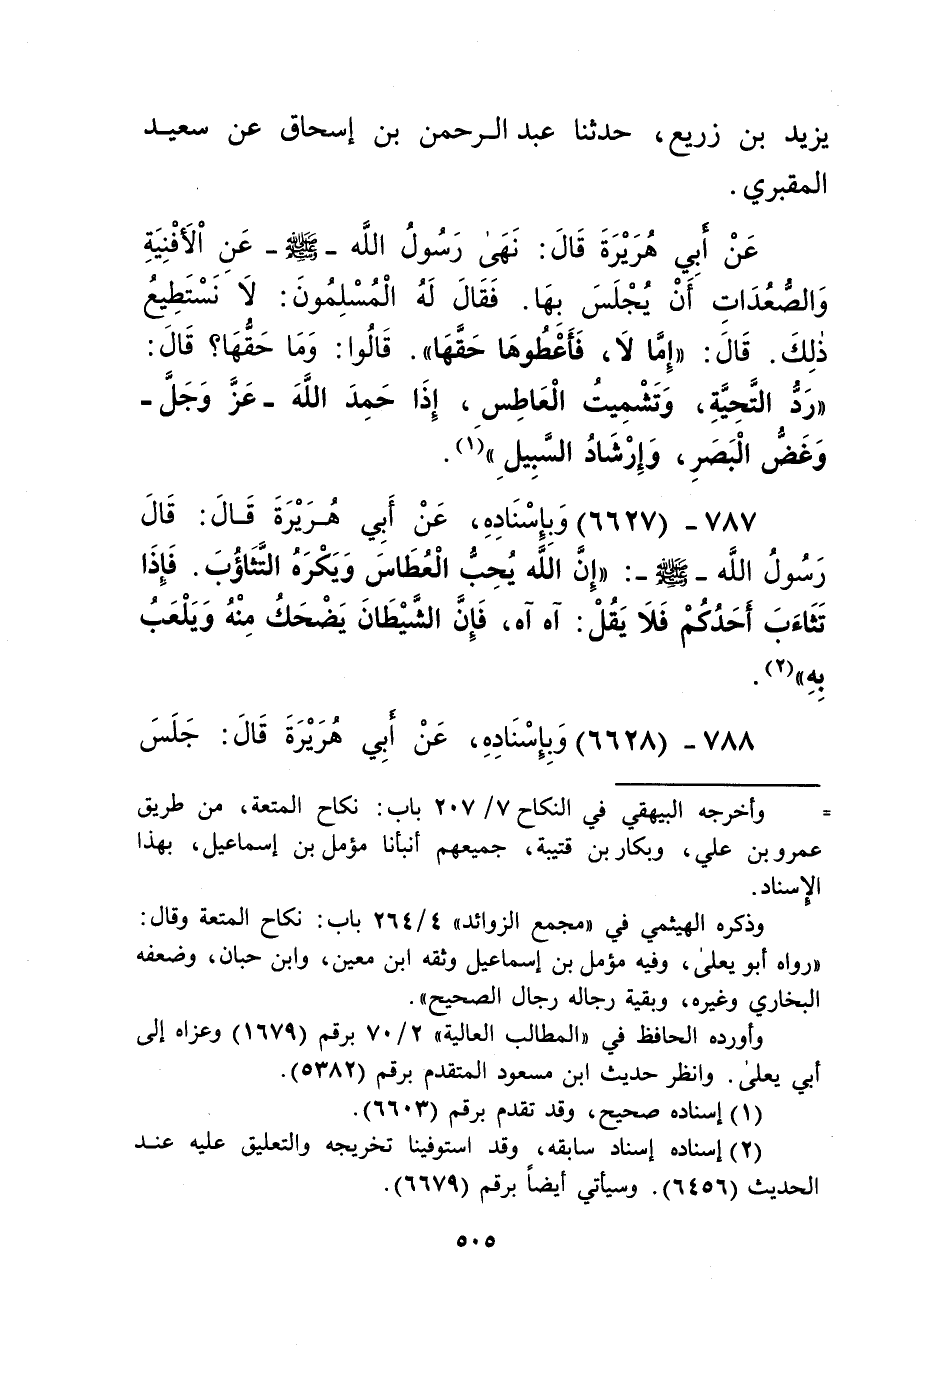 يزيد بن زريع، حدثنا عبد الرحمن بن إسحاق عن سعيد
المقبري.
عَنْ أَبِي هُرَيْرَةَ قَالَ: نَهَىٰ رَسُولُ اللَّه ـ ﷺ ـ عَنِ الْأَفْنِيَةِ
وَالصُّعُدَاتِ أَنْ يُجْلَسَ بِهَا. فَقَالَ لَهُ الْمُسْلِمُونَ: لَا نَسْتَطِيعُ
ذٰلِكَ. قَالَ: «إِمَّا لَا، فَأَعْطُوهَا حَقَّهَا». قَالُوا: وَمَا حَقُّهَا؟ قَالَ:
«رَدُّ التَّحِيَّةِ، وَتَشْمِيتُ الْعَاطِسِ، إِذَا حَمِدَ اللَّهَ ـ عَزَّ وَجَلَّ ـ
وَغَضُّ الْبَصَرِ، وَإِرْشَادُ السَّبِيلِ»(١).
٧٨٧ ـ (٦٦٢٧) وَبِإِسْنَادِهِ، عَنْ أَبِي هُرَيْرَةَ قَالَ: قَالَ
رَسُولُ اللَّه ـ ﷺ ـ: «إِنَّ اللَّه يُحِبُّ الْعُطَاسَ وَيَكْرَهُ التَّثَاؤُبَ. فَإِذَا
تَثَاءَبَ أَحَدُكُمْ فَلَا يَقُلْ: آه آه، فَإِنَّ الشَّيْطَانَ يَضْحَكُ مِنْهُ وَيَلْعَبُ
بِهِ»(٢).
٧٨٨ ـ (٦٦٢٨) وَبِإِسْنَادِهِ، عَنْ أَبِي هُرَيْرَةَ قَالَ: جَلَسَ
= وأخرجه البيهقي في النكاح ٧/ ٢٠٧ باب: نكاح المتعة، من طريق
عمرو بن علي، وبكار بن قتيبة، جميعهم أنبأنا مؤمل بن إسماعيل، بهذا
الإسناد.
وذكره الهيثمي في «مجمع الزوائد» ٢٦٤/٤ باب: نكاح المتعة وقال:
«رواه أبو يعلىٰ، وفيه مؤمل بن إسماعيل وثقه ابن معين، وابن حبان، وضعفه
البخاري وغيره، وبقية رجاله رجال الصحيح».
وأورده الحافظ في «المطالب العالية» ٧٠/٢ برقم (١٦٧٩) وعزاه إلى
أبي يعلىٰ. وانظر حديث ابن مسعود المتقدم برقم (٥٣٨٢).
(١) إسناده صحيح، وقد تقدم برقم (٦٦٠٣).
(٢) إسناده إسناد سابقه، وقد استوفينا تخريجه والتعليق عليه عند
الحديث (٦٤٥٦). وسيأتي أيضاً برقم (٦٦٧٩).
٥٠٥